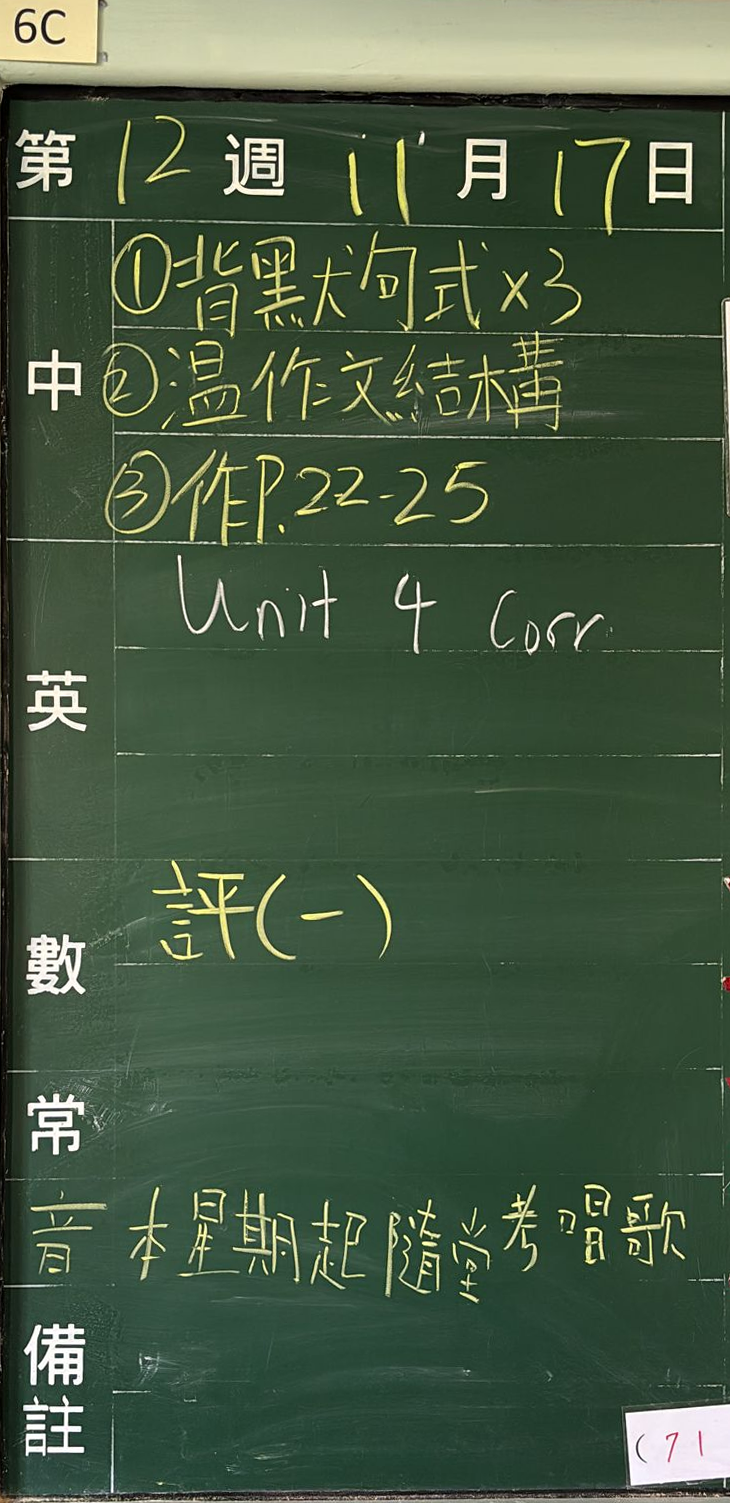 6C
第 12 週 11 月 17 日
中
①背默犬句式x3
②温作文結構
③作P.22-25
英
Unit 4 Corr.
數
評(一)
常
音 本星期起隨堂考唱歌
備註
(71